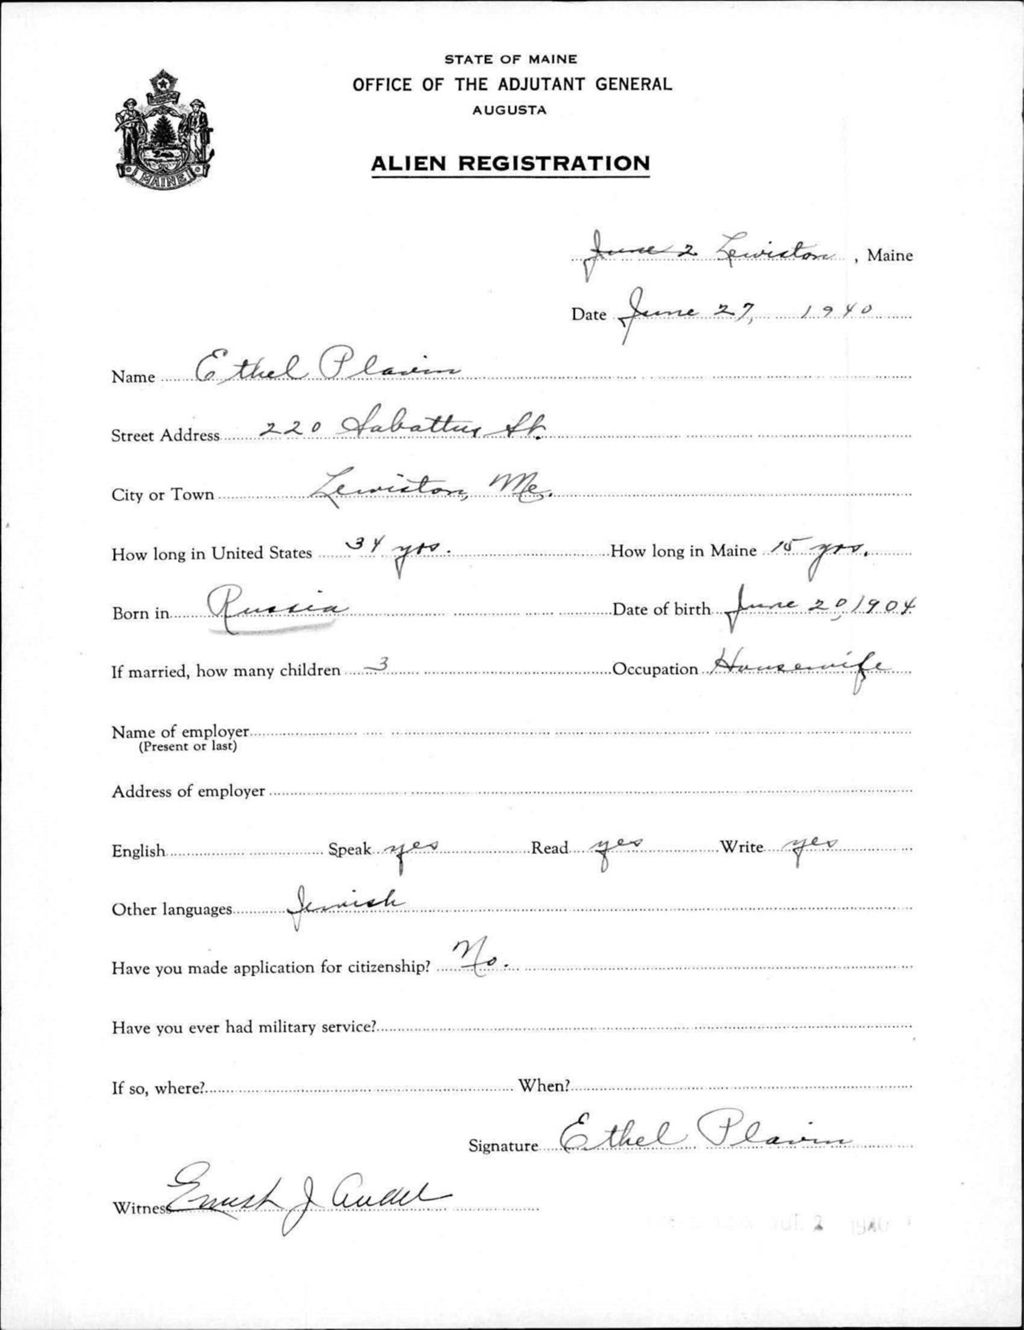 STATE OF MAINE
OFFICE OF THE ADJUTANT GENERAL
AUGUSTA
ALIEN REGISTRATION
MAINE
June 2 Lewiston, Maine
Date June 27, 1940
Name Ethel Plavin
Street Address 220 Sabattus St.
City or Town Lewiston, Me.
How long in United States 34 yrs. How long in Maine 15 yrs.
Born in Russia Date of birth June 20, 1904
If married, how many children 3 Occupation Housewife
Name of employer
(Present or last)
Address of employer
English Speak yes Read yes Write yes
Other languages Jewish
Have you made application for citizenship? No.
Have you ever had military service?
If so, where? When?
Signature Ethel Plavin
Witness Ernest J
2 1940